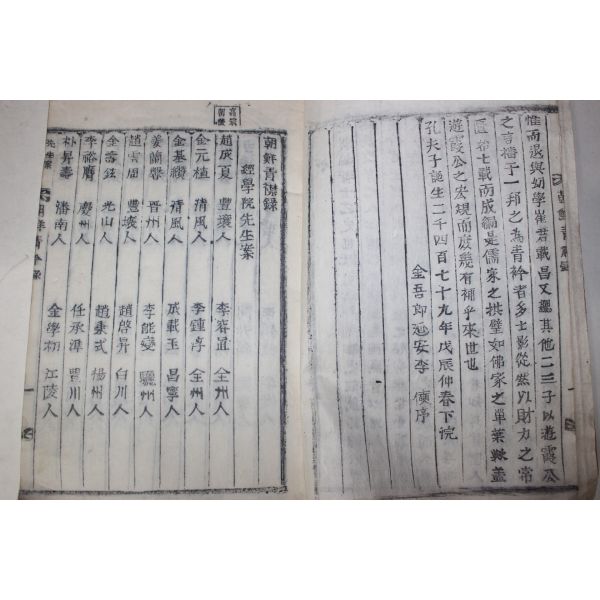 惟而退與幼學崔君載昌又繼其他二三子以遊霞公
之言播于一邦之為青衿者多士影從然以財力之常
匱
七載而成編是儒家之拱璧如佛家之單葉
蓋
遊霞公之宏規而庶幾有補乎來世也
孔夫子誕生二千四百七十九年戊辰仲春下浣
金吾郎延安李 序
朝鮮青襟錄
經學院先生案
趙成夏 豐壤人 李 全州人
金元植 清風人 李鍾淳 全州人
金基纘 清風人 成載玉 昌寧人
姜 晉州人 李能燮 驪州人
趙雲周 豐壤人 趙啓昇 白川人
金 光山人 趙秉式 楊州人
李裕膺 慶州人 任承準 豐川人
朴昇壽 潘南人 金學初 江陵人
先生案
朝鮮青衿錄
一